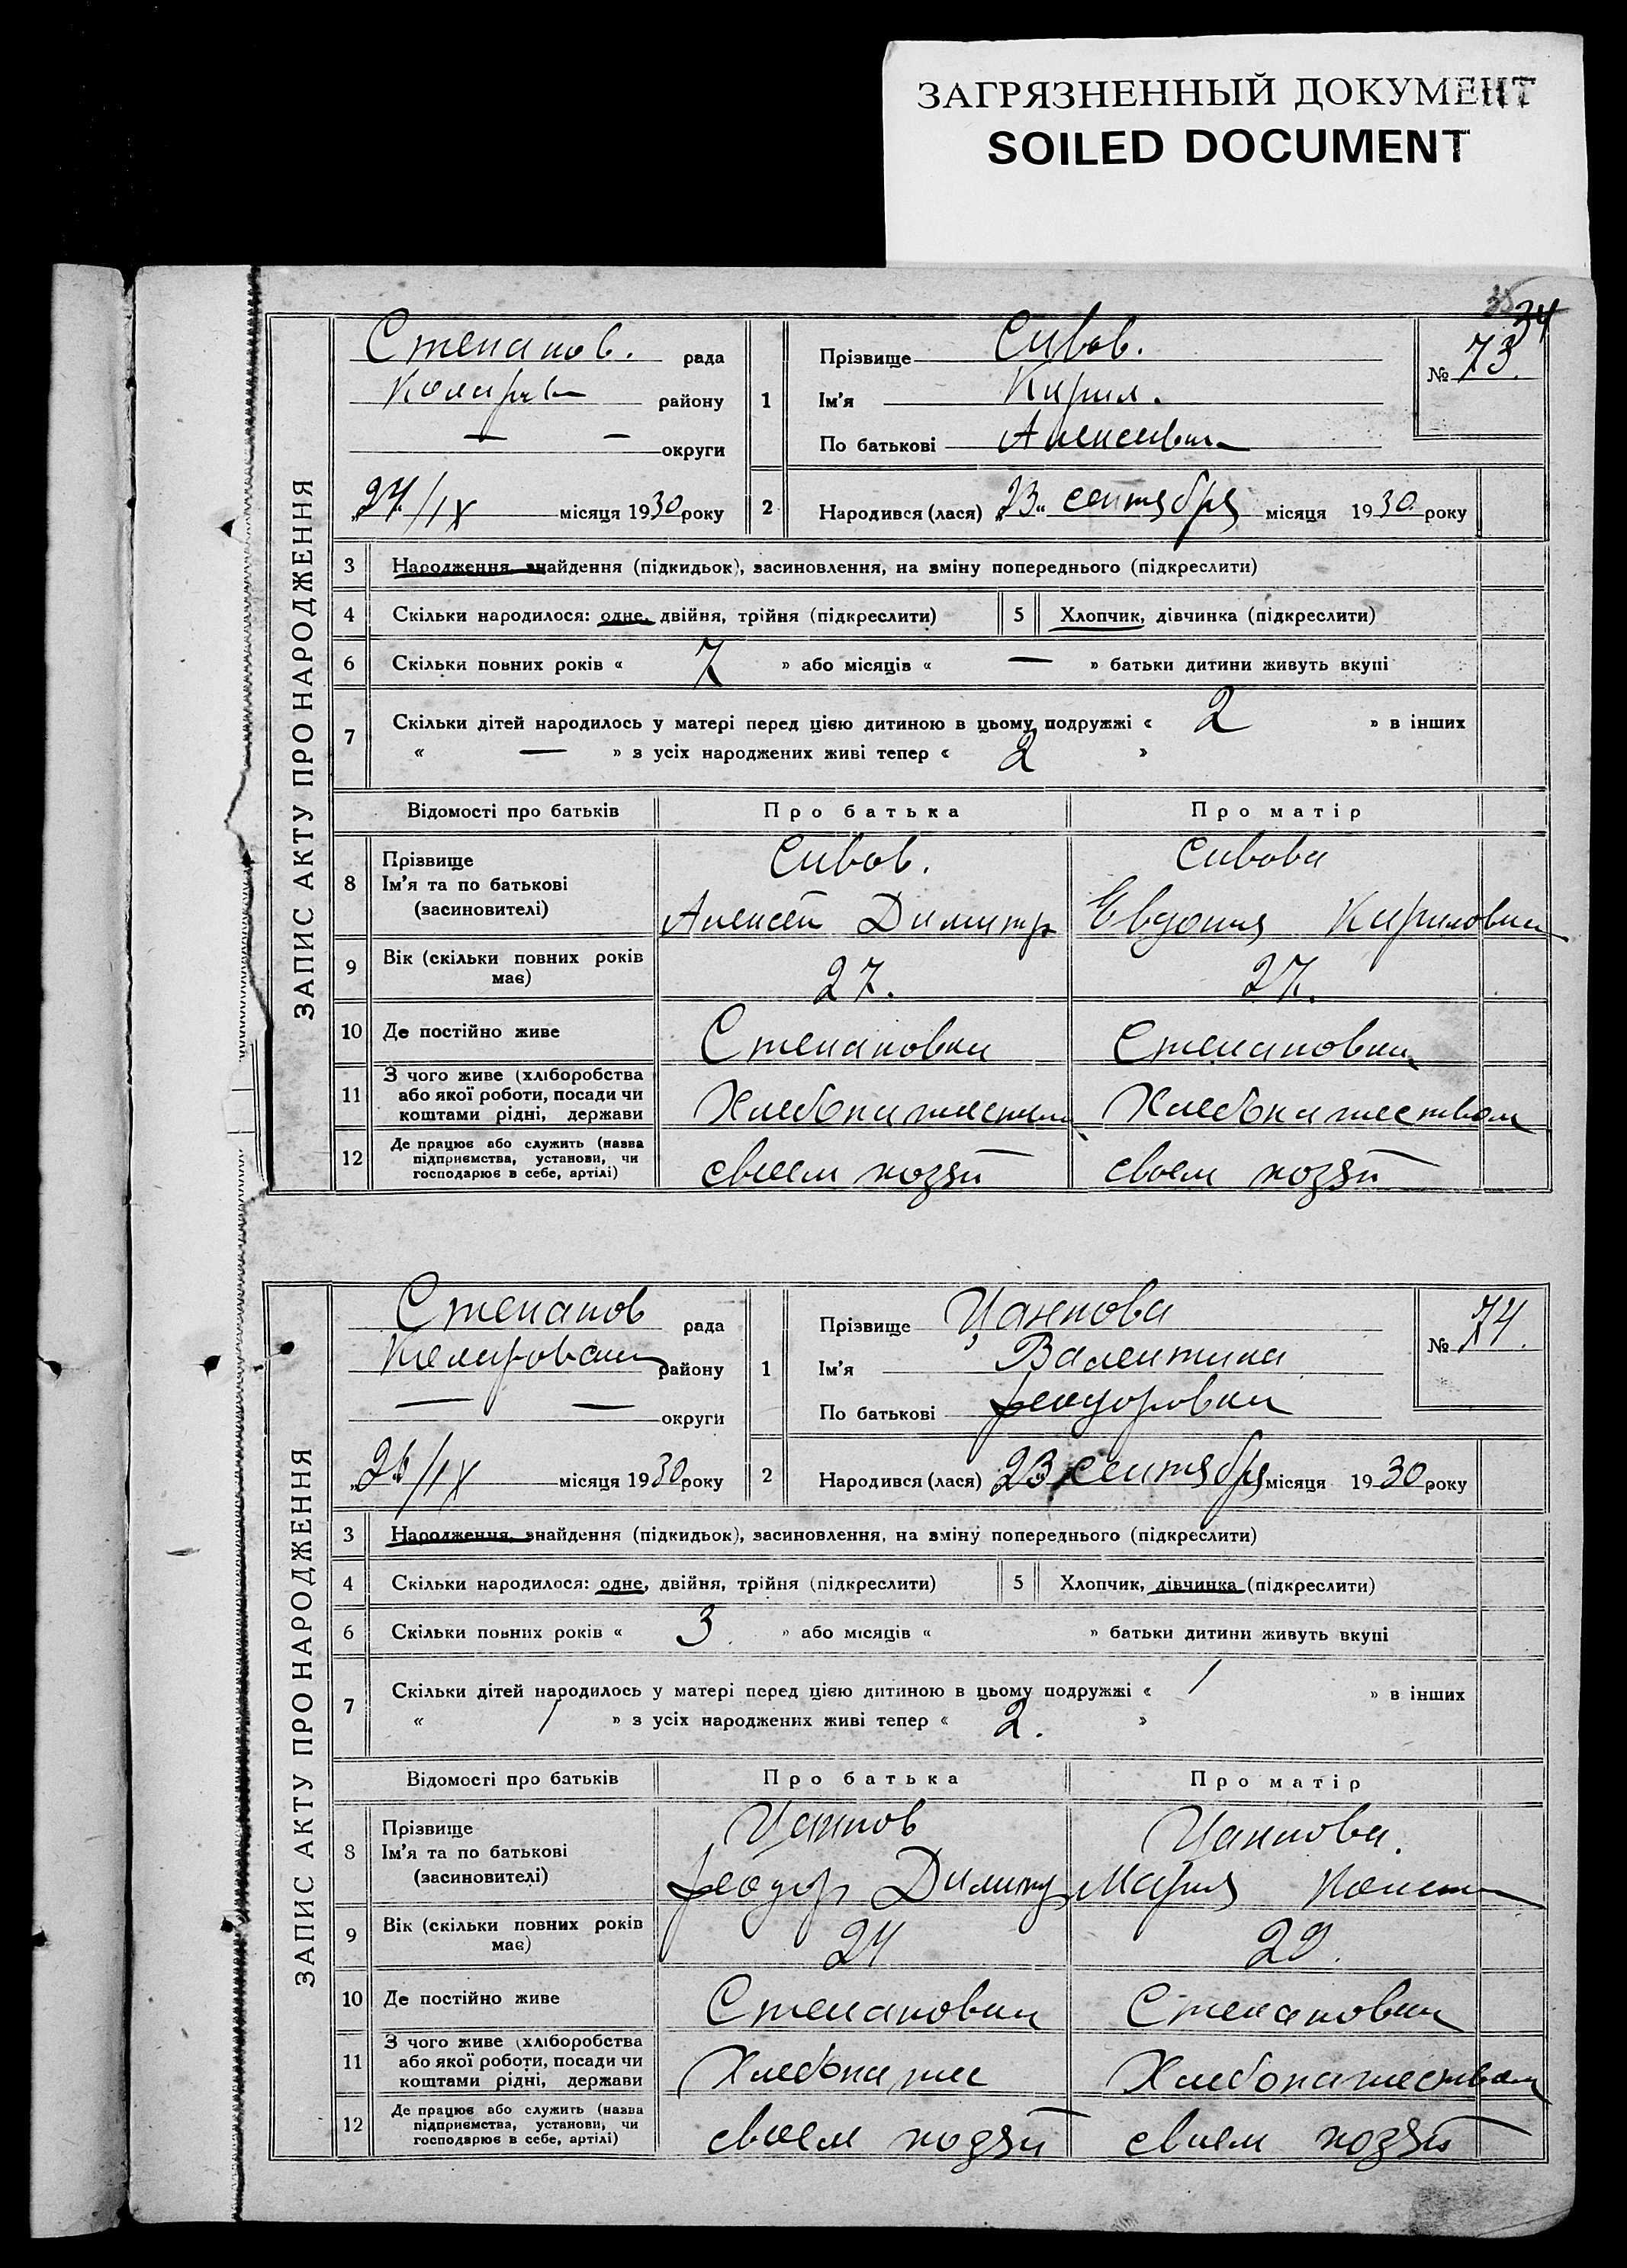 ЗАГРЯЗНЕННЫЙ ДОКУМЕНТ
SOILED DOCUMENT
34
ЗАПИС АКТУ ПРО НАРОДЖЕННЯ
Степанов. рада
району
— — округи
27/IX місяця 1930 року
1 Прізвище Сивов.
Ім'я Кирил.
По батькові Алексеевич
№ 73.
2 Народився (лася) „23" сентября місяця 1930 року
3 Народження, знайдення (підкидьок), засиновлення, на зміну попереднього (підкреслити)
4 Скільки народилося: одне, двійня, трійня (підкреслити) 5 Хлопчик, дівчинка (підкреслити)
6 Скільки повних років « 7 » або місяців « — » батьки дитини живуть вкупі
7 Скільки дітей народилось у матері перед цією дитиною в цьому подружжі « 2 » в інших
« — » з усіх народжених живі тепер « 2 »
Відомості про батьків Про батька Про матір
8 Прізвище Ім'я та по батькові (засиновителі)
Сивов. Сивова
Алексей Димитр Евдокия Кириловна
9 Вік (скільки повних років має) 27. 27.
10 Де постійно живе Степановки Степановки
11 З чого живе (хліборобства або якої роботи, посади чи коштами рідні, держави Хлебопашеством Хлебопашеством
12 Де працює або служить (назва підприємства, установи, чи господарює в себе, артілі) своем хозяй своем хозяй
ЗАПИС АКТУ ПРО НАРОДЖЕННЯ
Степанов рада
району
— — округи
/IX місяця 1930 року
1 Прізвище Цанкова
Ім'я Валентина
По батькові Феодоровна
№ 74.
2 Народився (лася) „23" сентября місяця 1930 року
3 Народження, знайдення (підкидьок), засиновлення, на зміну попереднього (підкреслити)
4 Скільки народилося: одне, двійня, трійня (підкреслити) 5 Хлопчик, дівчинка (підкреслити)
6 Скільки повних років « 3 » або місяців « » батьки дитини живуть вкупі
7 Скільки дітей народилось у матері перед цією дитиною в цьому подружжі « 1 » в інших
« 1 » з усіх народжених живі тепер « 2. »
Відомості про батьків Про батька Про матір
8 Прізвище Ім'я та по батькові (засиновителі)
Цанков Цанкова.
Феодор Димитр Мария Конст
9 Вік (скільки повних років має) 24 29.
10 Де постійно живе Степановки Степановки
11 З чого живе (хліборобства або якої роботи, посади чи коштами рідні, держави Хлебопаше Хлебопашеством
12 Де працює або служить (назва підприємства, установи, чи господарює в себе, артілі) своем хозяй своем хозяй